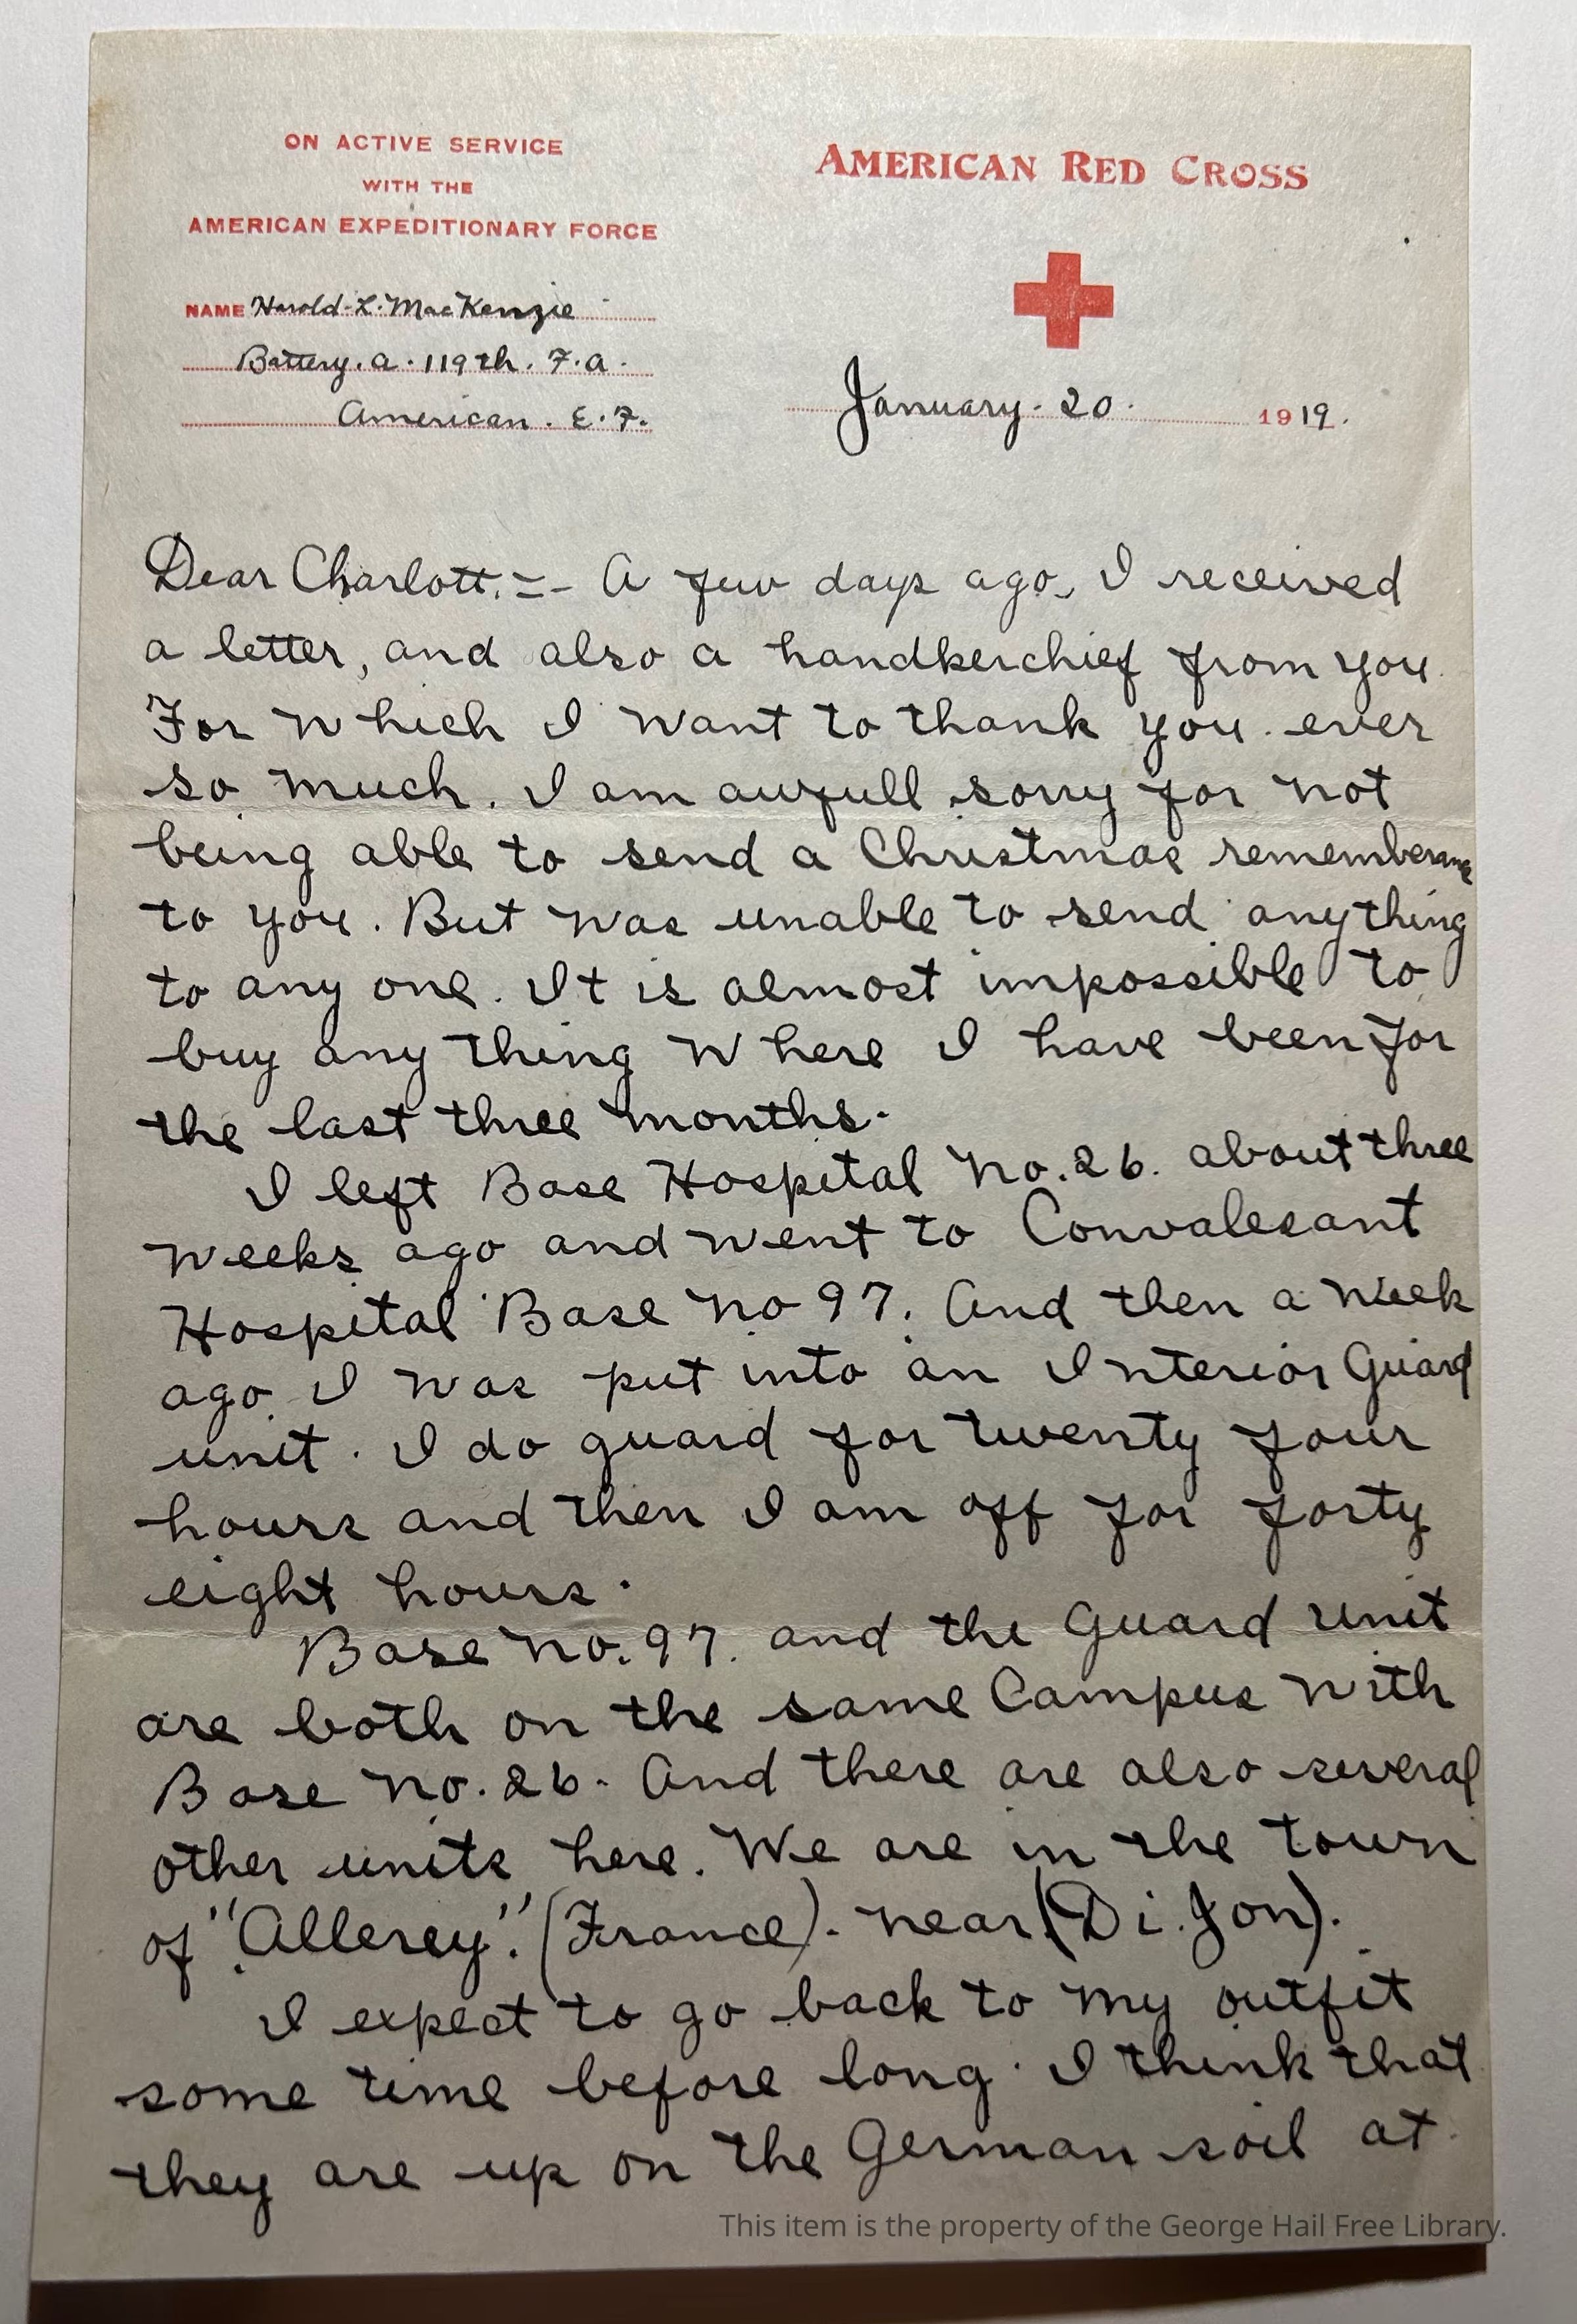 ON ACTIVE SERVICE
WITH THE
AMERICAN EXPEDITIONARY FORCE
NAME Harold. L. MacKenzie
Battery. A. 119th. F. A.
American. E. F.
AMERICAN RED CROSS
January. 20. 1919.
Dear Charlott. :- A few days ago, I received
a letter, and also a handkerchief from you.
For which I want to thank you ever
so much. I am awfull sorry for not
being able to send a Christmas rememberance
to you. But was unable to send anything
to any one. It is almost impossible to
buy any thing where I have been for
the last three months.
I left Base Hospital No. 26. about three
weeks ago and went to Convalesant
Hospital Base No 97. And then a week
ago I was put into an Interior Guard
unit. I do guard for twenty four
hours and then I am off for forty
eight hours.
Base No. 97. and the Guard unit
are both on the same Campus with
Base No. 26. And there are also several
other units here. We are in the town
of "Allerey". (France). near (Di. Jon).
I expect to go back to my outfit
some time before long. I think that
they are up on the German soil at
This item is the property of the George Hail Free Library.